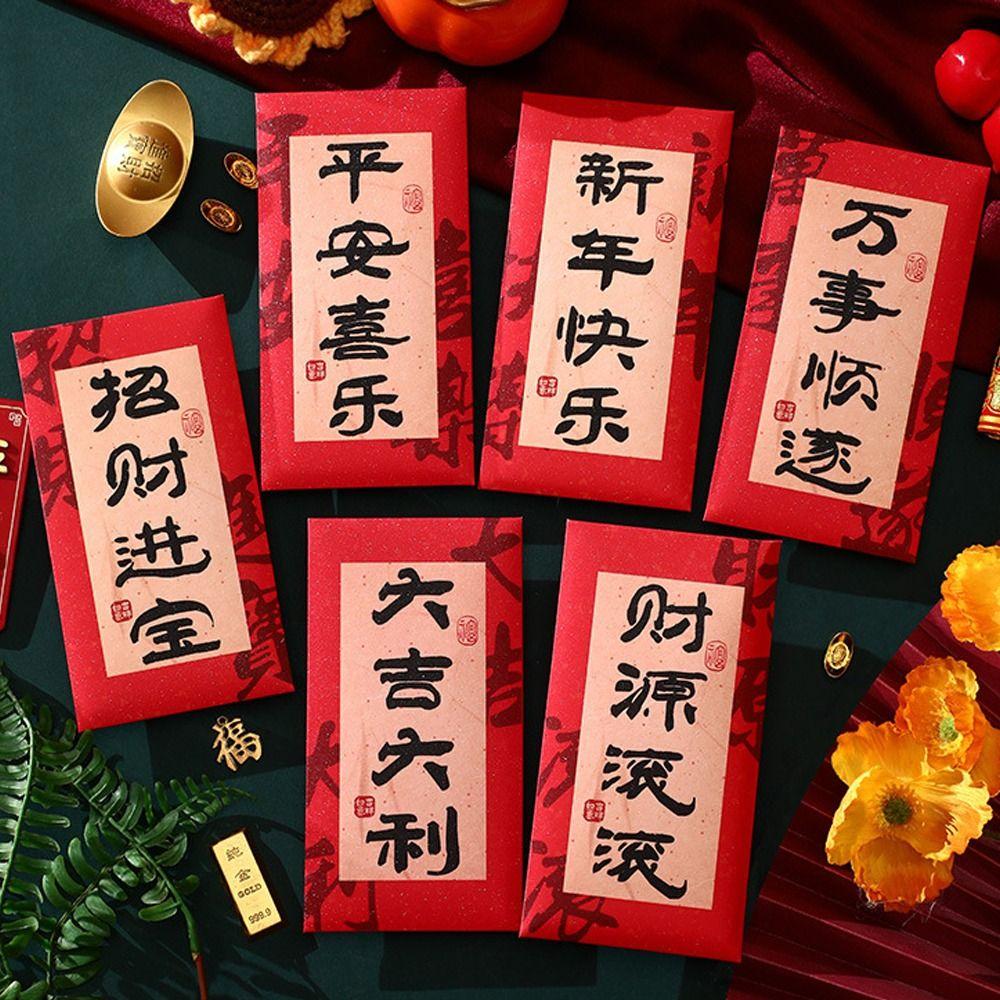 平安喜乐
新年快乐
万事顺遂
招财进宝
大吉大利
财源滚滚
福
纯金
GOLD
999.9